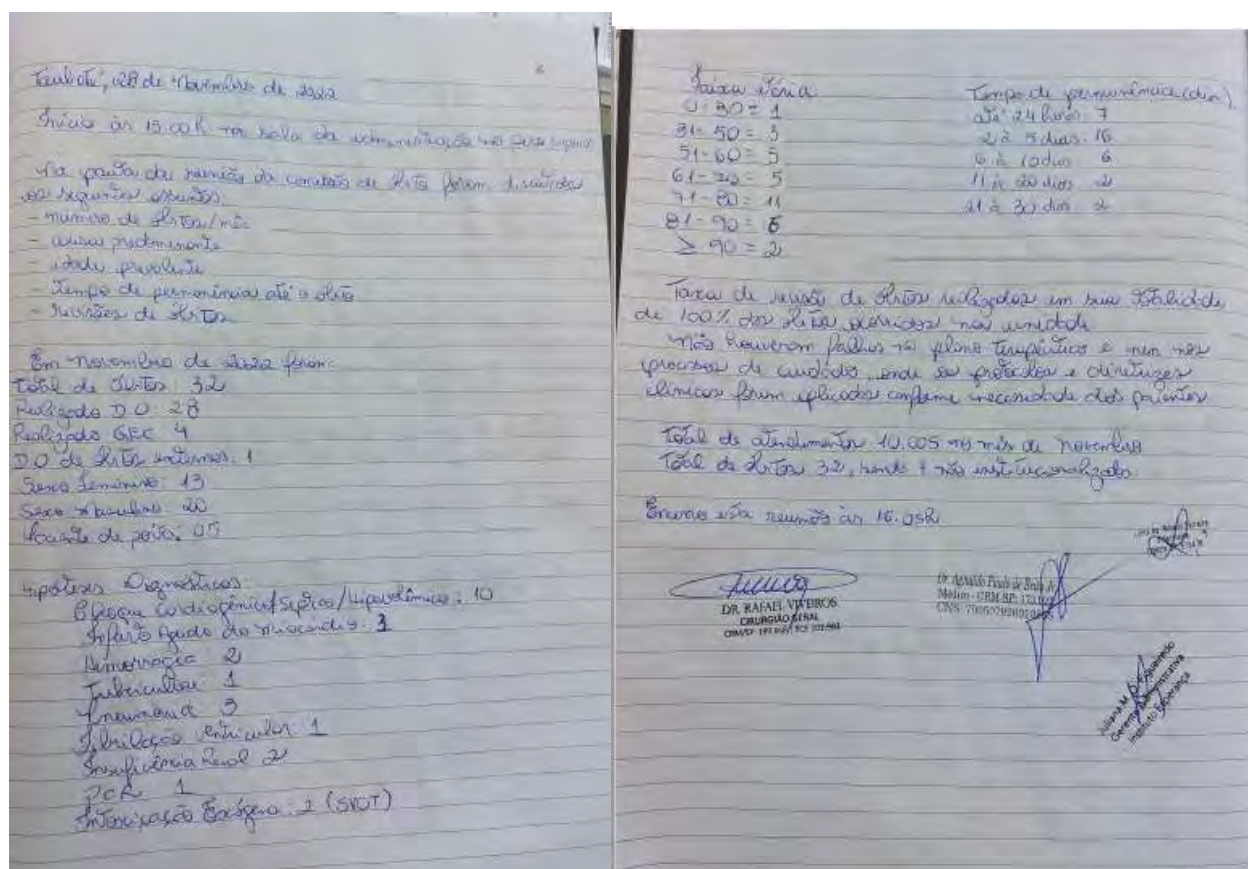 Taubaté, 28 de Novembro de 2022
Início às 15:00h na sala da administração no piso superior
Na pauta da reunião da comissão de óbito foram discutidos
os seguintes assuntos
- número de óbitos/mês
- causa predominante
- idade prevalente
- tempo de permanência até o óbito
- revisões de óbitos
Em novembro de 2022 foram:
Total de óbitos: 32
Realizado D.O: 28
Realizado GEC 4
D.O de óbitos externos: 1
Sexo feminino: 13
Sexo masculino: 20
Hipóteses Diagnósticas:
Choque Cardiogênico/Séptico/Hipovolêmico: 10
Infarto Agudo do miocárdio: 3
Hemorragia 2
Tuberculose 1
Pneumonia 9
Fibrilação Ventricular 1
Insuficiência Renal 2
PCR 1
Intoxicação Exógena: (SVOT)
Faixa etária
0-30 = 1
31-50 = 3
51-60 = 5
61-70 = 5
71-80 = 11
81-90 = 6
≥ 90 = 2
Tempo de permanência (dias)
até 24 horas 7
2 à 5 dias. 16
6 à 10 dias 6
11 à 20 dias 2
21 à 30 dias 2
Taxa de revisão de óbitos realizados em sua totalidade
de 100% dos óbitos ocorridos na unidade
Não houveram falhas no plano terapêutico e nem nos
processos de cuidado, onde os protocolos e diretrizes
clínicas foram aplicados conforme necessidade dos pacientes
Total de atendimentos 10.005 no mês de novembro
Total de óbitos 32, sendo 1 não institucionalizado.
Encerro esta reunião às 16:05h
DR. RAFAEL VIVEIROS
CIRURGIÃO GERAL
CRM/SP
Dr. Agnaldo de
Médico - CRM-SP:
CNS:
Juliana M. D. Figueiredo
Gerente Administrativa
Instituto Esperança